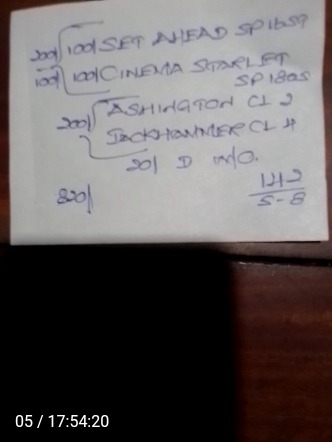 200/ 100/ SET AHEAD SP 1659
100/ 100/ CINEMA STARLET
SP 1805
200/ ASHINGTON CL 2
JACKHAMMER CL 4
20/ D W/O.
820/ 142
5-8
05 / 17:54:20